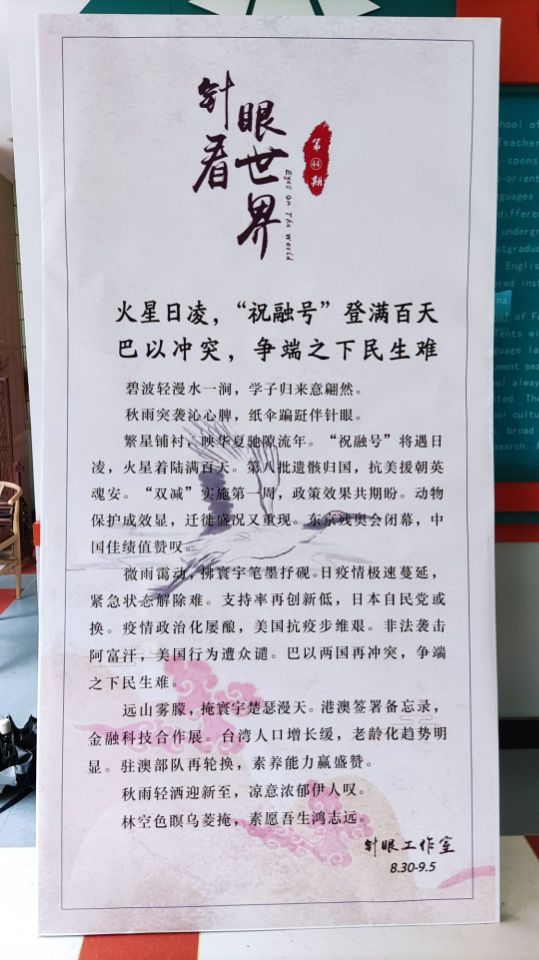 针眼看世界
Eyes On The World
第44期
火星日凌，“祝融号”登满百天
巴以冲突，争端之下民生难
碧波轻漫水一涧，学子归来意翩然。
秋雨突袭沁心脾，纸伞蹁跹伴针眼。
繁星铺衬，映华夏驰隙流年。“祝融号”将遇日
凌，火星着陆满百天。第八批遗骸归国，抗美援朝英
魂安。“双减”实施第一周，政策效果共期盼。动物
保护成效显，迁徙盛况又重现。东京残奥会闭幕，中
国佳绩值赞叹。
微雨霭动，拂寰宇笔墨抒砚。日疫情极速蔓延，
紧急状态解除难。支持率再创新低，日本自民党或
换。疫情政治化屡酿，美国抗疫步维艰。非法袭击
阿富汗，美国行为遭众谴。巴以两国再冲突，争端
之下民生难。
远山雾朦，掩寰宇楚瑟漫天。港澳签署备忘录，
金融科技合作展。台湾人口增长缓，老龄化趋势明
显。驻澳部队再轮换，素养能力赢盛赞。
秋雨轻洒迎新至，凉意浓郁伊人叹。
林空色暝乌菱掩，素愿吾生鸿志远。
针眼工作室
8.30-9.5